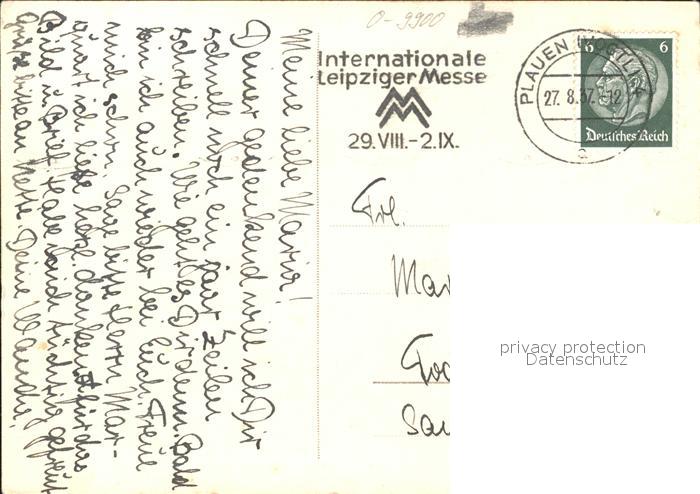 0-9900
Internationale
Leipziger Messe
29.VIII.-2.IX.
PLAUEN (VOGTL)
27.8.37.-12
a
6 6
Deutsches Reich
Meine liebe Maria!
Deiner gedenkend will ich Dir
schnell noch ein paar Zeilen
schreiben. Wie geht es Dir denn. Bald
bin ich auch wieder bei Euch. Freue
mich schon. Sage bitte Herrn Mar-
quart ich lasse herzl. danken für das
Bild u. Brief. Habe mich tüchtig gefreut
Grüße bitte an Deine
Frl.
Mar
Sau
privacy protection
Datenschutz